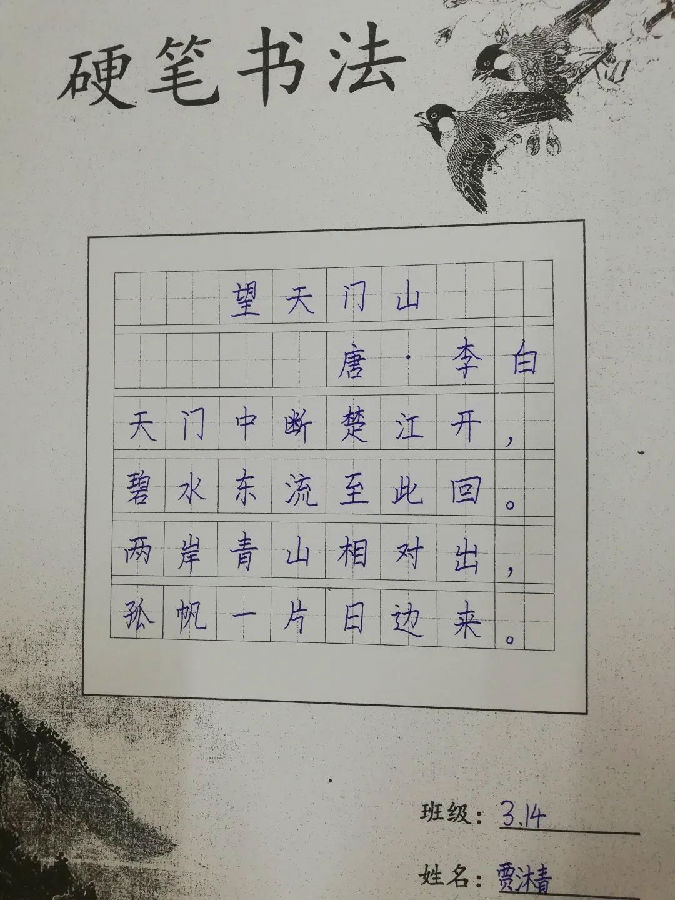 硬笔书法
望天门山
唐·李白
天门中断楚江开，
碧水东流至此回。
两岸青山相对出，
孤帆一片日边来。
班级：3.14
姓名：贾沐青